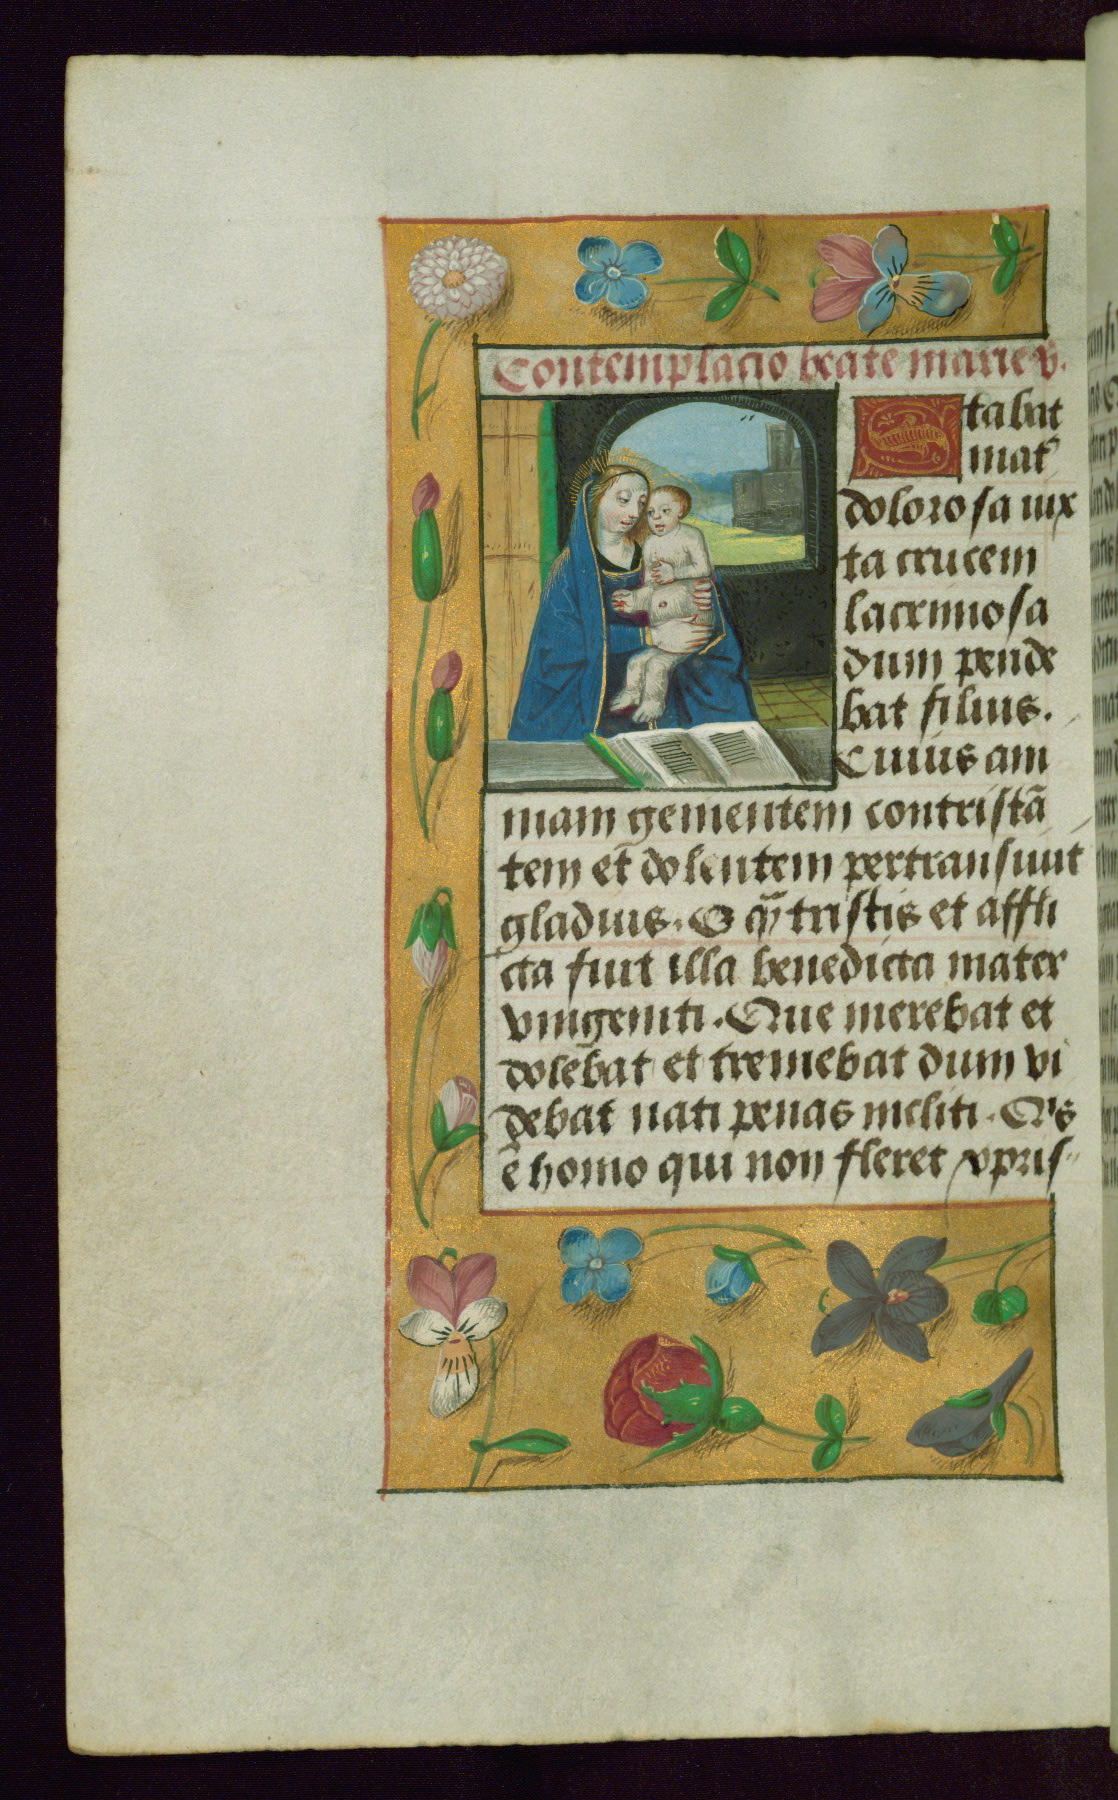 Contemplacio beate marie v̄.
Stabat
mat̄
dolorosa iux
ta crucem
lacrimosa
dum pende
bat filius.
Cuius ani
mam gementem contristā
tem et dolentem pertransiuit
gladius. O qͣ tristis et affli
cta fuit illa benedicta mater
vnigeniti. Que merebat et
dolebat et tremebat dum vi
debat nati penas incliti. Qͥs
ē homo qui non fleret xpris